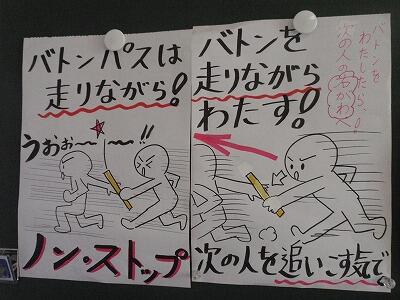 バトンパスは
走りながら!
うおぉ〜〜!!
ノン・ストップ
バトンを
走りながら
わたす!
バトンを
わたしたら、
次の人の右がわへ!
次の人を追いこす気で